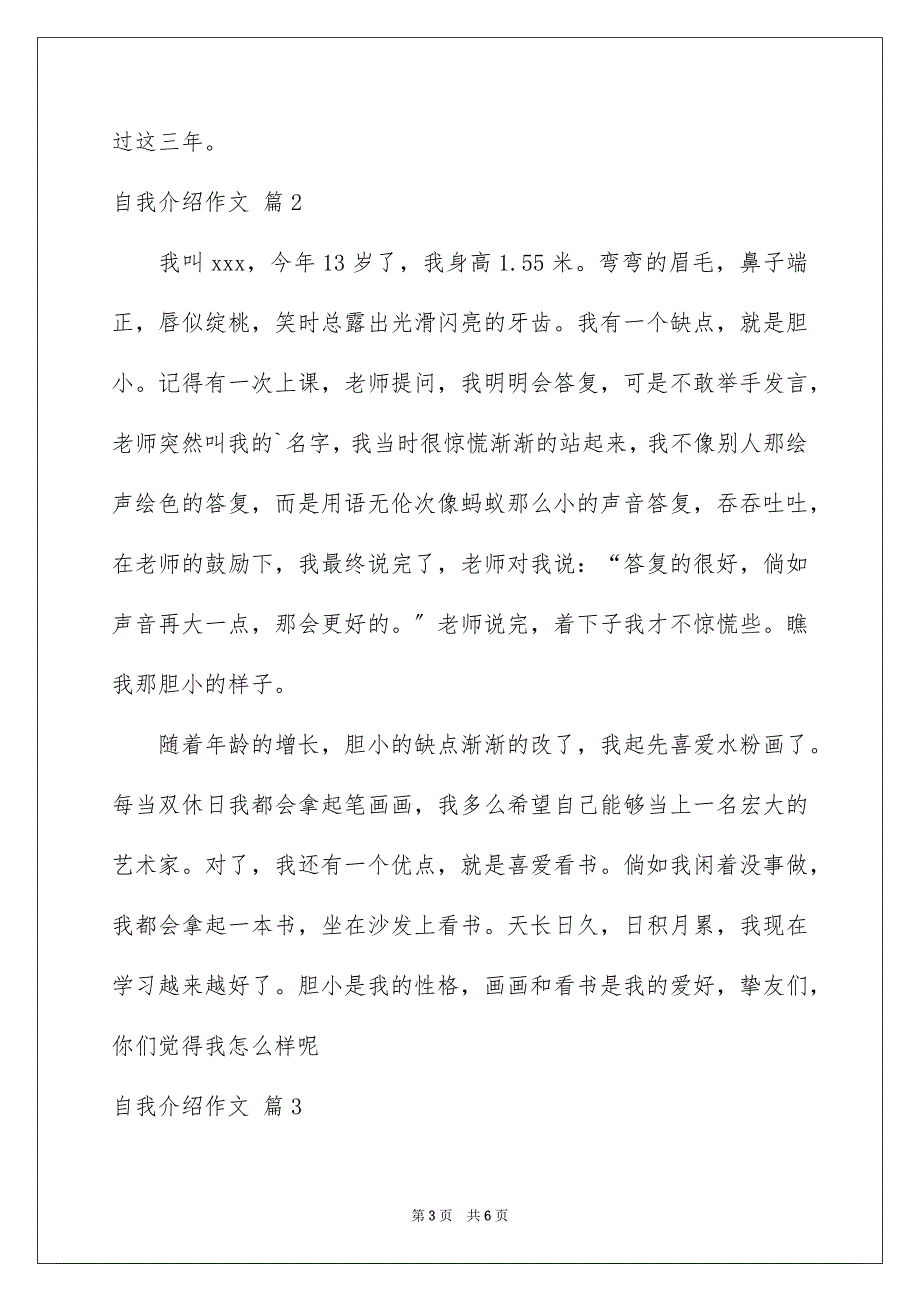 过这三年。
自我介绍作文 篇2
我叫 xxx，今年 13 岁了，我身高 1.55 米。弯弯的眉毛，鼻子端
正，唇似绽桃，笑时总露出光滑闪亮的牙齿。我有一个缺点，就是胆
小。记得有一次上课，老师提问，我明明会答复，可是不敢举手发言，
老师突然叫我的`名字，我当时很惊慌渐渐的站起来，我不像别人那绘
声绘色的答复，而是用语无伦次像蚂蚁那么小的声音答复，吞吞吐吐，
在老师的鼓励下，我最终说完了，老师对我说：“答复的很好，倘如
声音再大一点，那会更好的。〞老师说完，着下子我才不惊慌些。瞧
我那胆小的样子。
随着年龄的增长，胆小的缺点渐渐的改了，我起先喜爱水粉画了。
每当双休日我都会拿起笔画画，我多么希望自己能够当上一名宏大的
艺术家。对了，我还有一个优点，就是喜爱看书。倘如我闲着没事做，
我都会拿起一本书，坐在沙发上看书。天长日久，日积月累，我现在
学习越来越好了。胆小是我的性格，画画和看书是我的爱好，挚友们，
你们觉得我怎么样呢
自我介绍作文 篇3
第 3 页 共 6 页